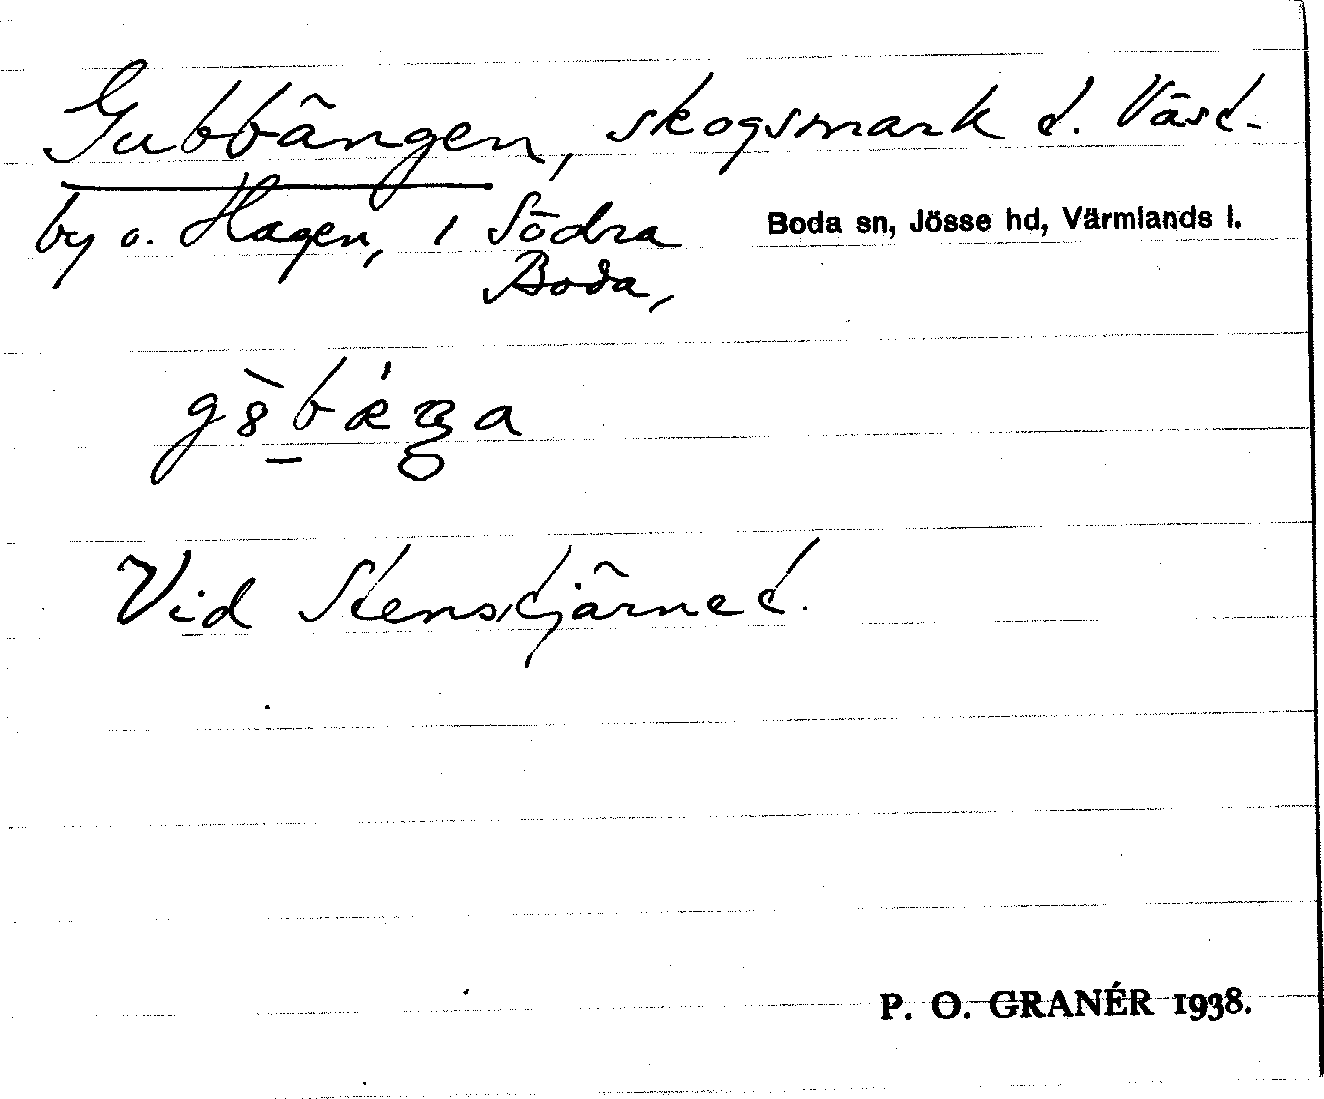 Gubbängen, skogsmark t. Väst-
by o. Hagen, i Södra
Boda,
Boda sn, Jösse hd, Värmlands l.
Vid Stenstjärnet.
P. O. GRANÉR 1938.